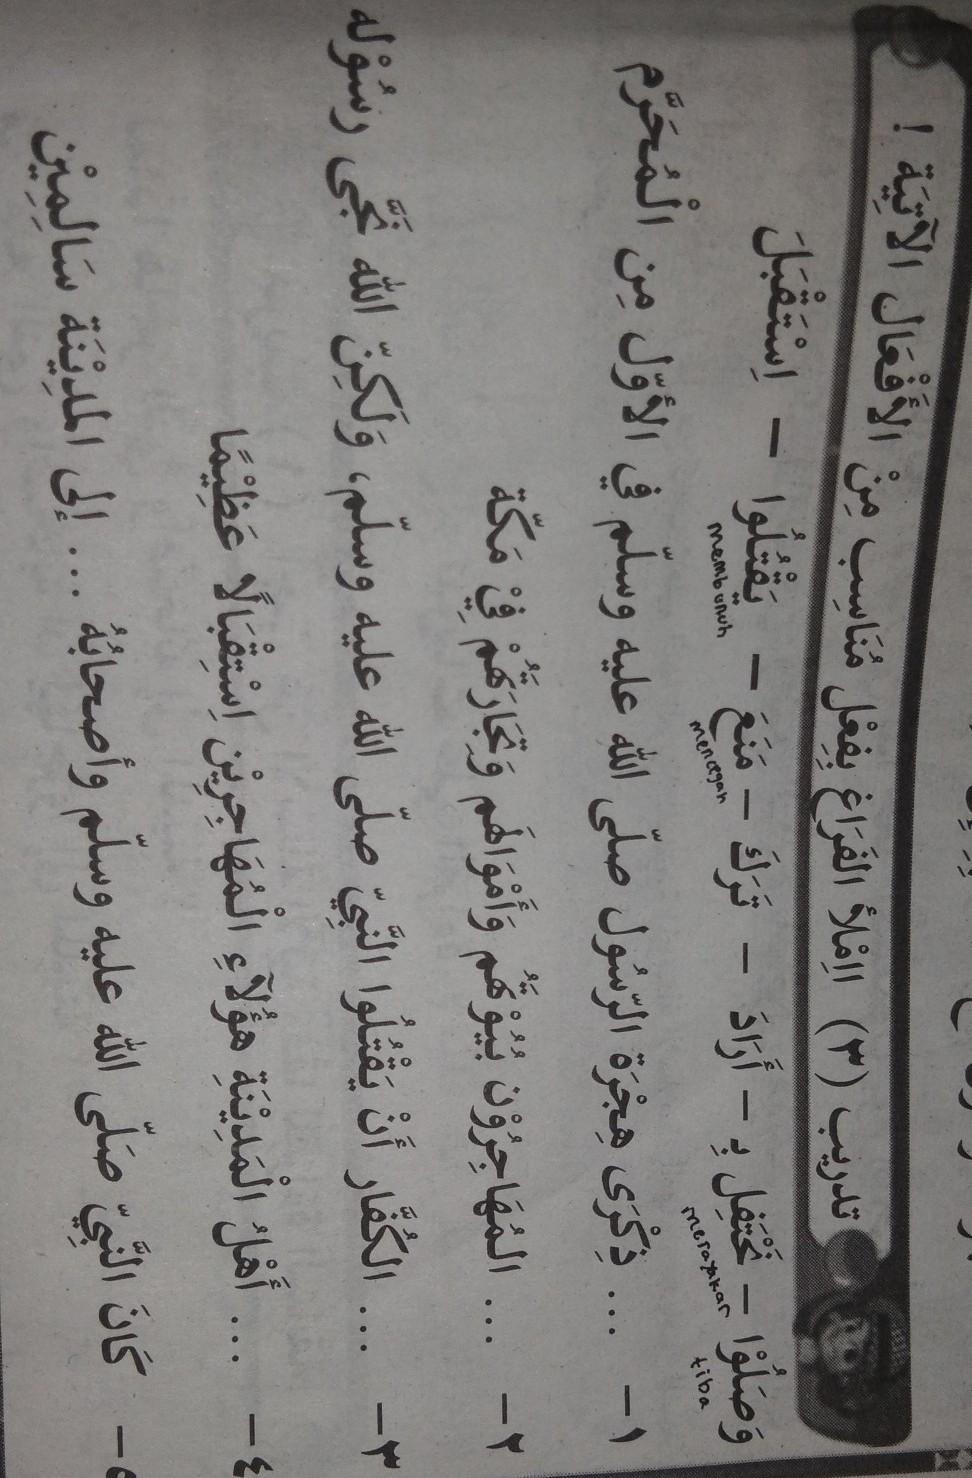 تدريب (٣) اِمْلأ الفَرَاغ بِفِعْل مُنَاسِب مِنْ الأَفْعَال الآتِيَة !
وَصَلُوْا – نَحْتَفِل بِـ – أَرَادَ – تَرَكَ – مَنَعَ – يَقْتُلُوا – اِسْتَقْبَلَ
tiba merayakan mencegah membunuh
١ – ... ذِكْرَى هِجْرَة الرّسُول صلّى الله عليه وسلّم في الأوّل مِن الْمُحَرَّم
٢ – ... المُهَاجِرُوْن بُيُوْتَهُم وَأَمْوَالَهُم وَتِجَارَتَهُمْ فِيْ مَكّة
٣ – ... الكُفَّار أَنْ يَقْتُلُوا النَّبِيّ صلّى الله عليه وسلّم، وَلَكِنّ الله نَجَّى رسُوْله
٤ – ... أَهْلُ الْمَدِيْنَةِ هَؤُلآءِ الْمُهَاجِرِيْن اِسْتِقْبَالًا عَظِيْمًا
٥ – كَانَ النَّبِيّ صَلّى الله عليه وسلّم وأَصحابُهُ ... إلى المدِيْنَة سَالِمِيْن